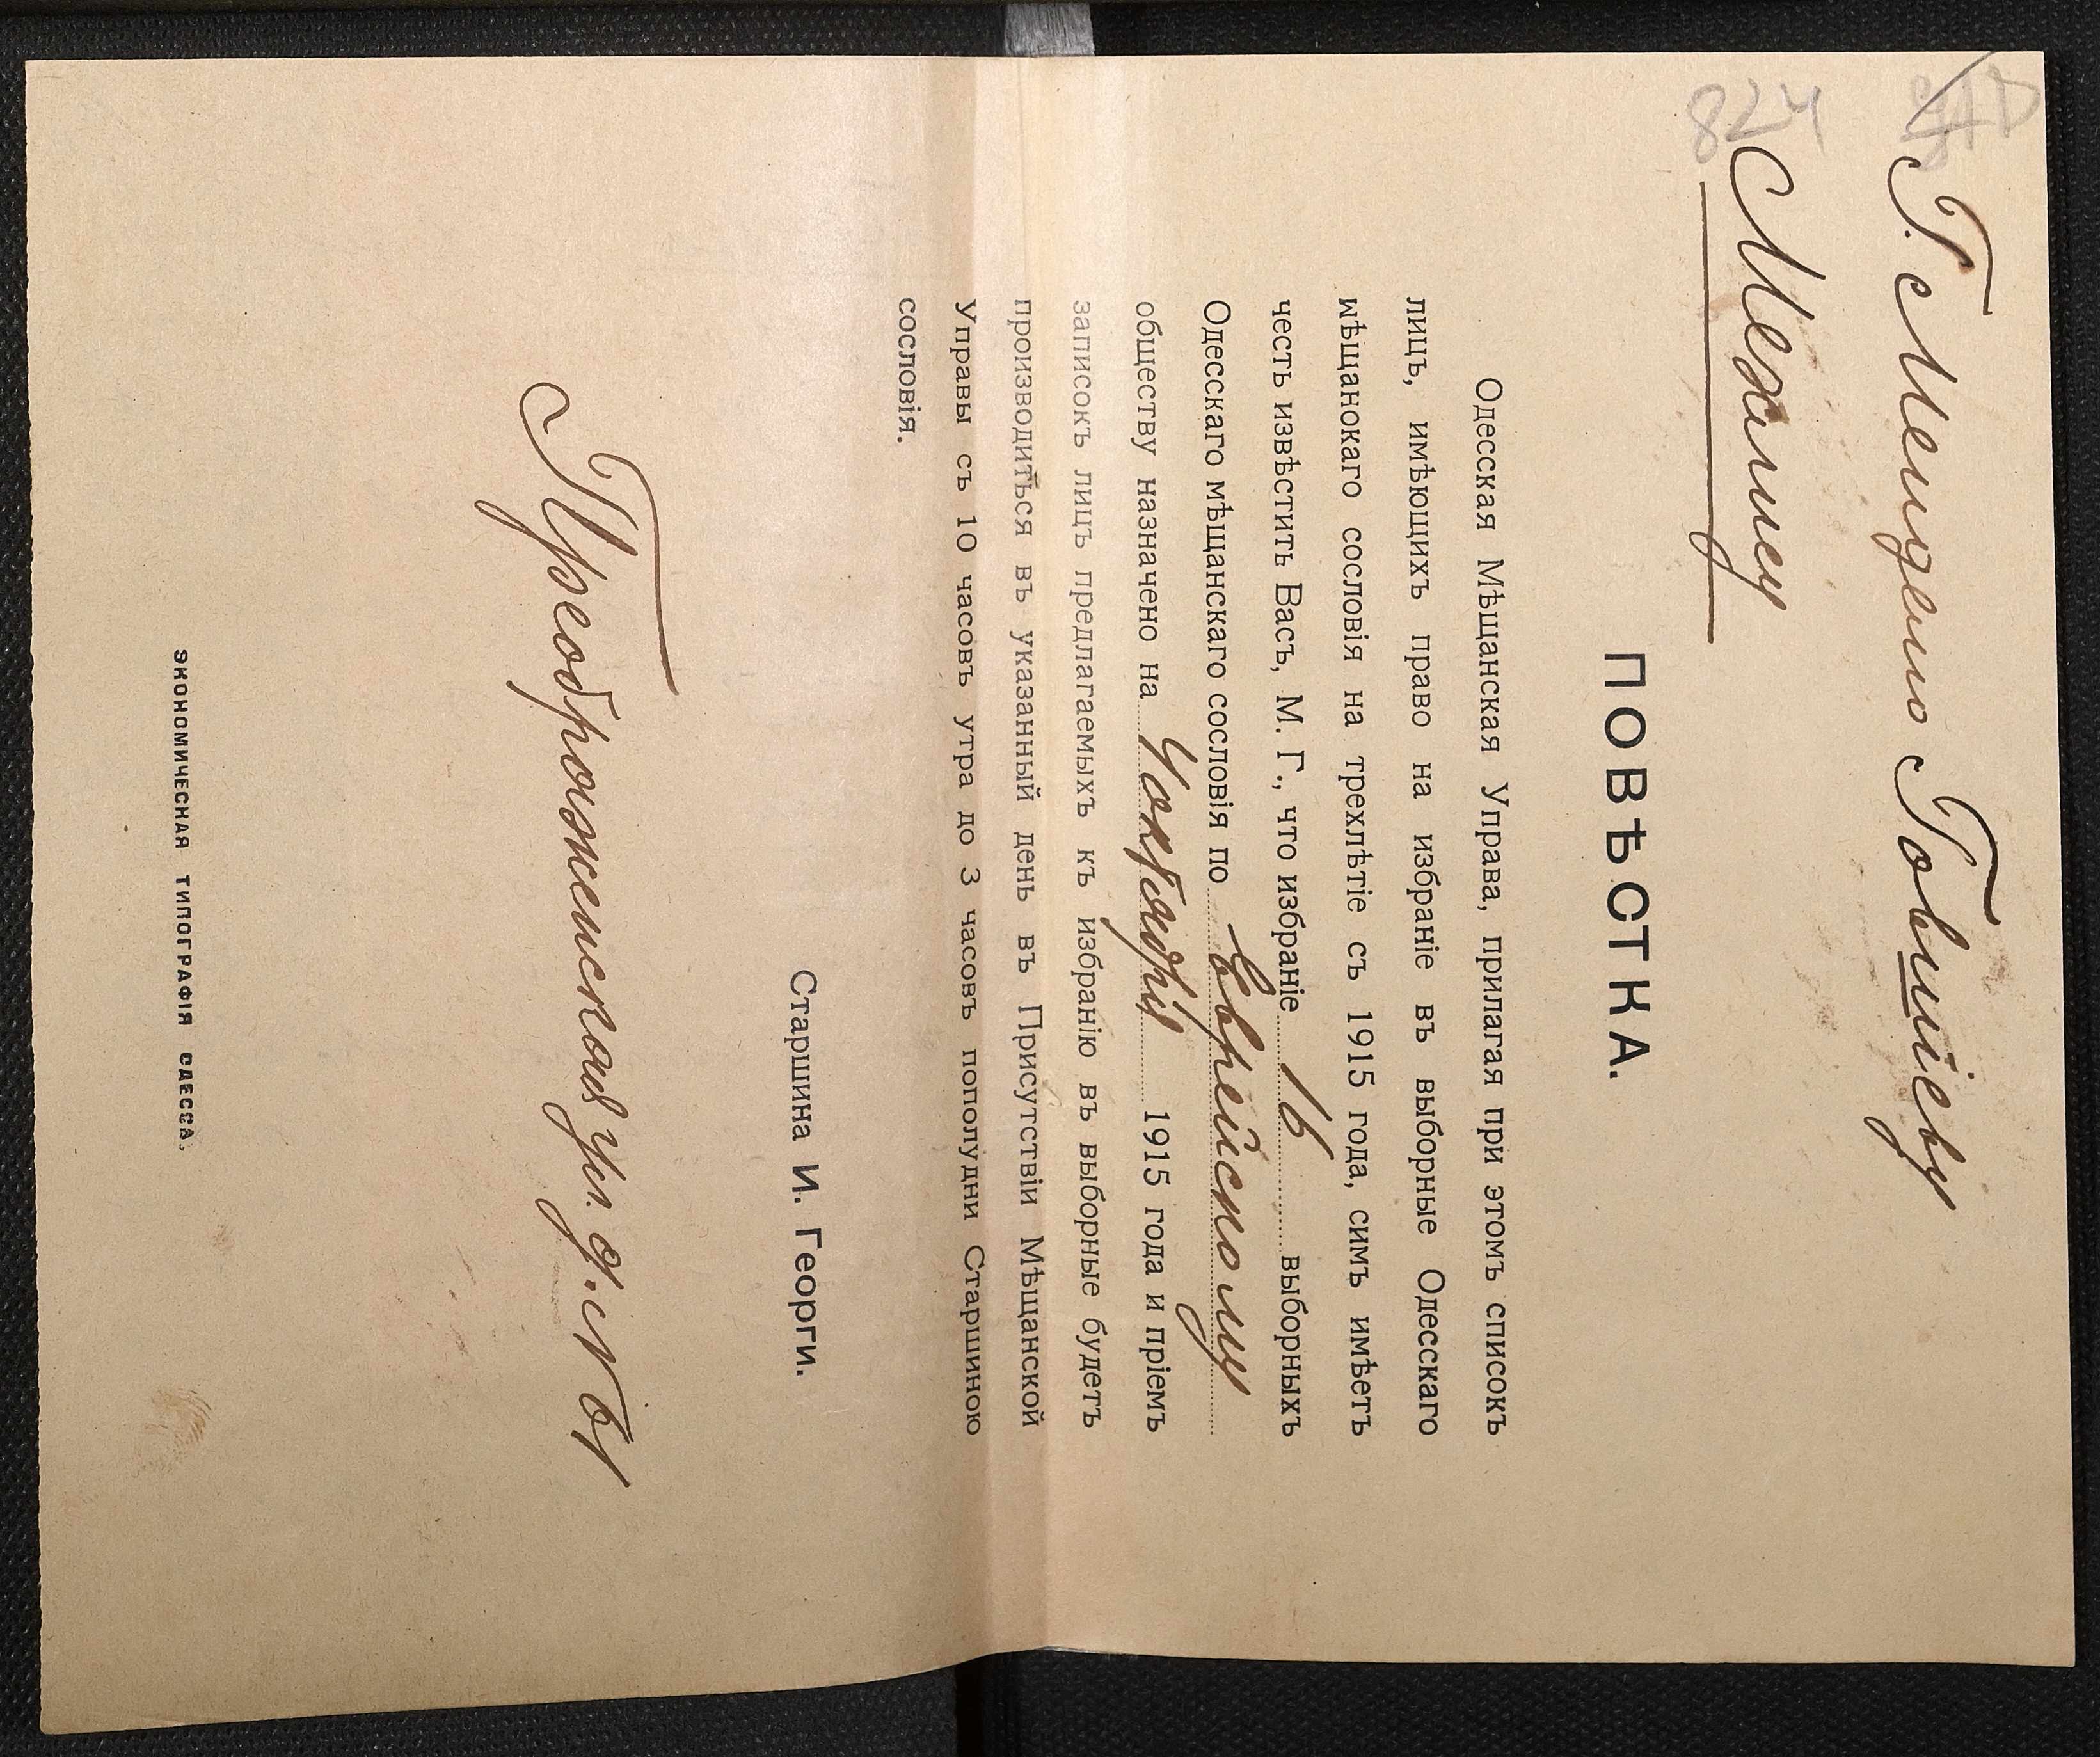 824
Г. Менделю Говшіеву
Мехамеу
ПОВѢСТКА.
Одесская Мѣщанская Управа, прилагая при этомъ списокъ
лицъ, имѣющихъ право на избраніе въ выборные Одесскаго
мѣщанокаго сословія на трехлѣтіе съ 1915 года, симъ имѣетъ
честь извѣстить Васъ, М. Г., что избраніе 16 выборныхъ
Одесскаго мѣщанскаго сословія по Еврейскому
обществу назначено на 4 октября 1915 года и пріемъ
записокъ лицъ предлагаемыхъ къ избранію въ выборные будетъ
производиться въ указанный день въ Присутствіи Мѣщанской
Управы съ 10 часовъ утра до 3 часовъ пополудни Старшиною
сословія.
Старшина И. Георги.
Преображенская ул. д. №
ЭКОНОМИЧЕСКАЯ ТИПОГРАФІЯ ОДЕССА.